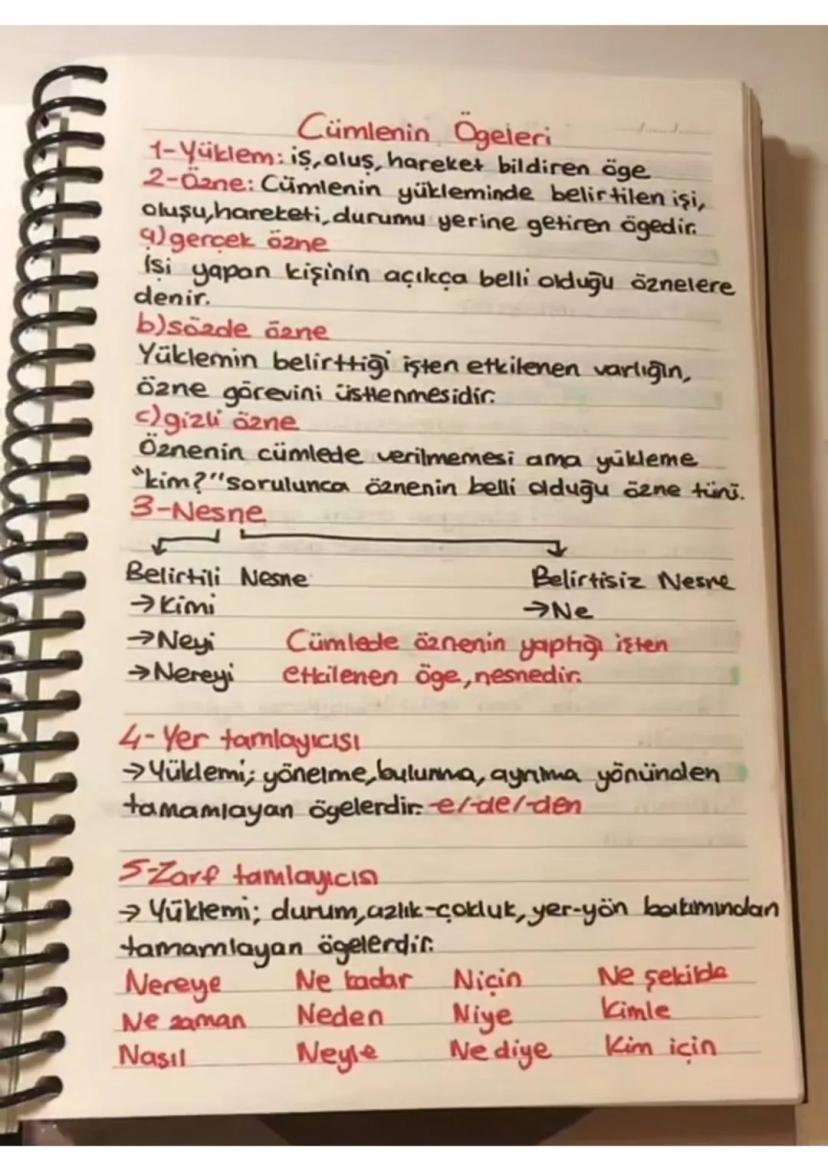 Cümlenin Ögeleri
1-Yüklem: iş, oluş, hareket bildiren öge
2-Özne: Cümlenin yükleminde belirtilen işi,
oluşu, hareketi, durumu yerine getiren ögedir.
a) gerçek özne
İşi yapan kişinin açıkça belli olduğu öznelere
denir.
b) sözde özne
Yüklemin belirttiği işten etkilenen varlığın,
özne görevini üstlenmesidir.
c) gizli özne
Öznenin cümlede verilmemesi ama yükleme
"kim?" sorulunca öznenin belli olduğu özne türü.
3-Nesne
Belirtili Nesne Belirtisiz Nesne
→Kimi →Ne
→Neyi Cümlede öznenin yaptığı işten
→Nereyi etkilenen öge, nesnedir.
4-Yer tamlayıcısı
→Yüklemi; yönelme, bulunma, ayrılma yönünden
tamamlayan ögelerdir. -e/-de/-den
5-Zarf tamlayıcısı
→Yüklemi; durum, azlık-çokluk, yer-yön bakımından
tamamlayan ögelerdir.
Nereye Ne kadar Niçin Ne şekilde
Ne zaman Neden Niye Kimle
Nasıl Neyle Ne diye Kim için